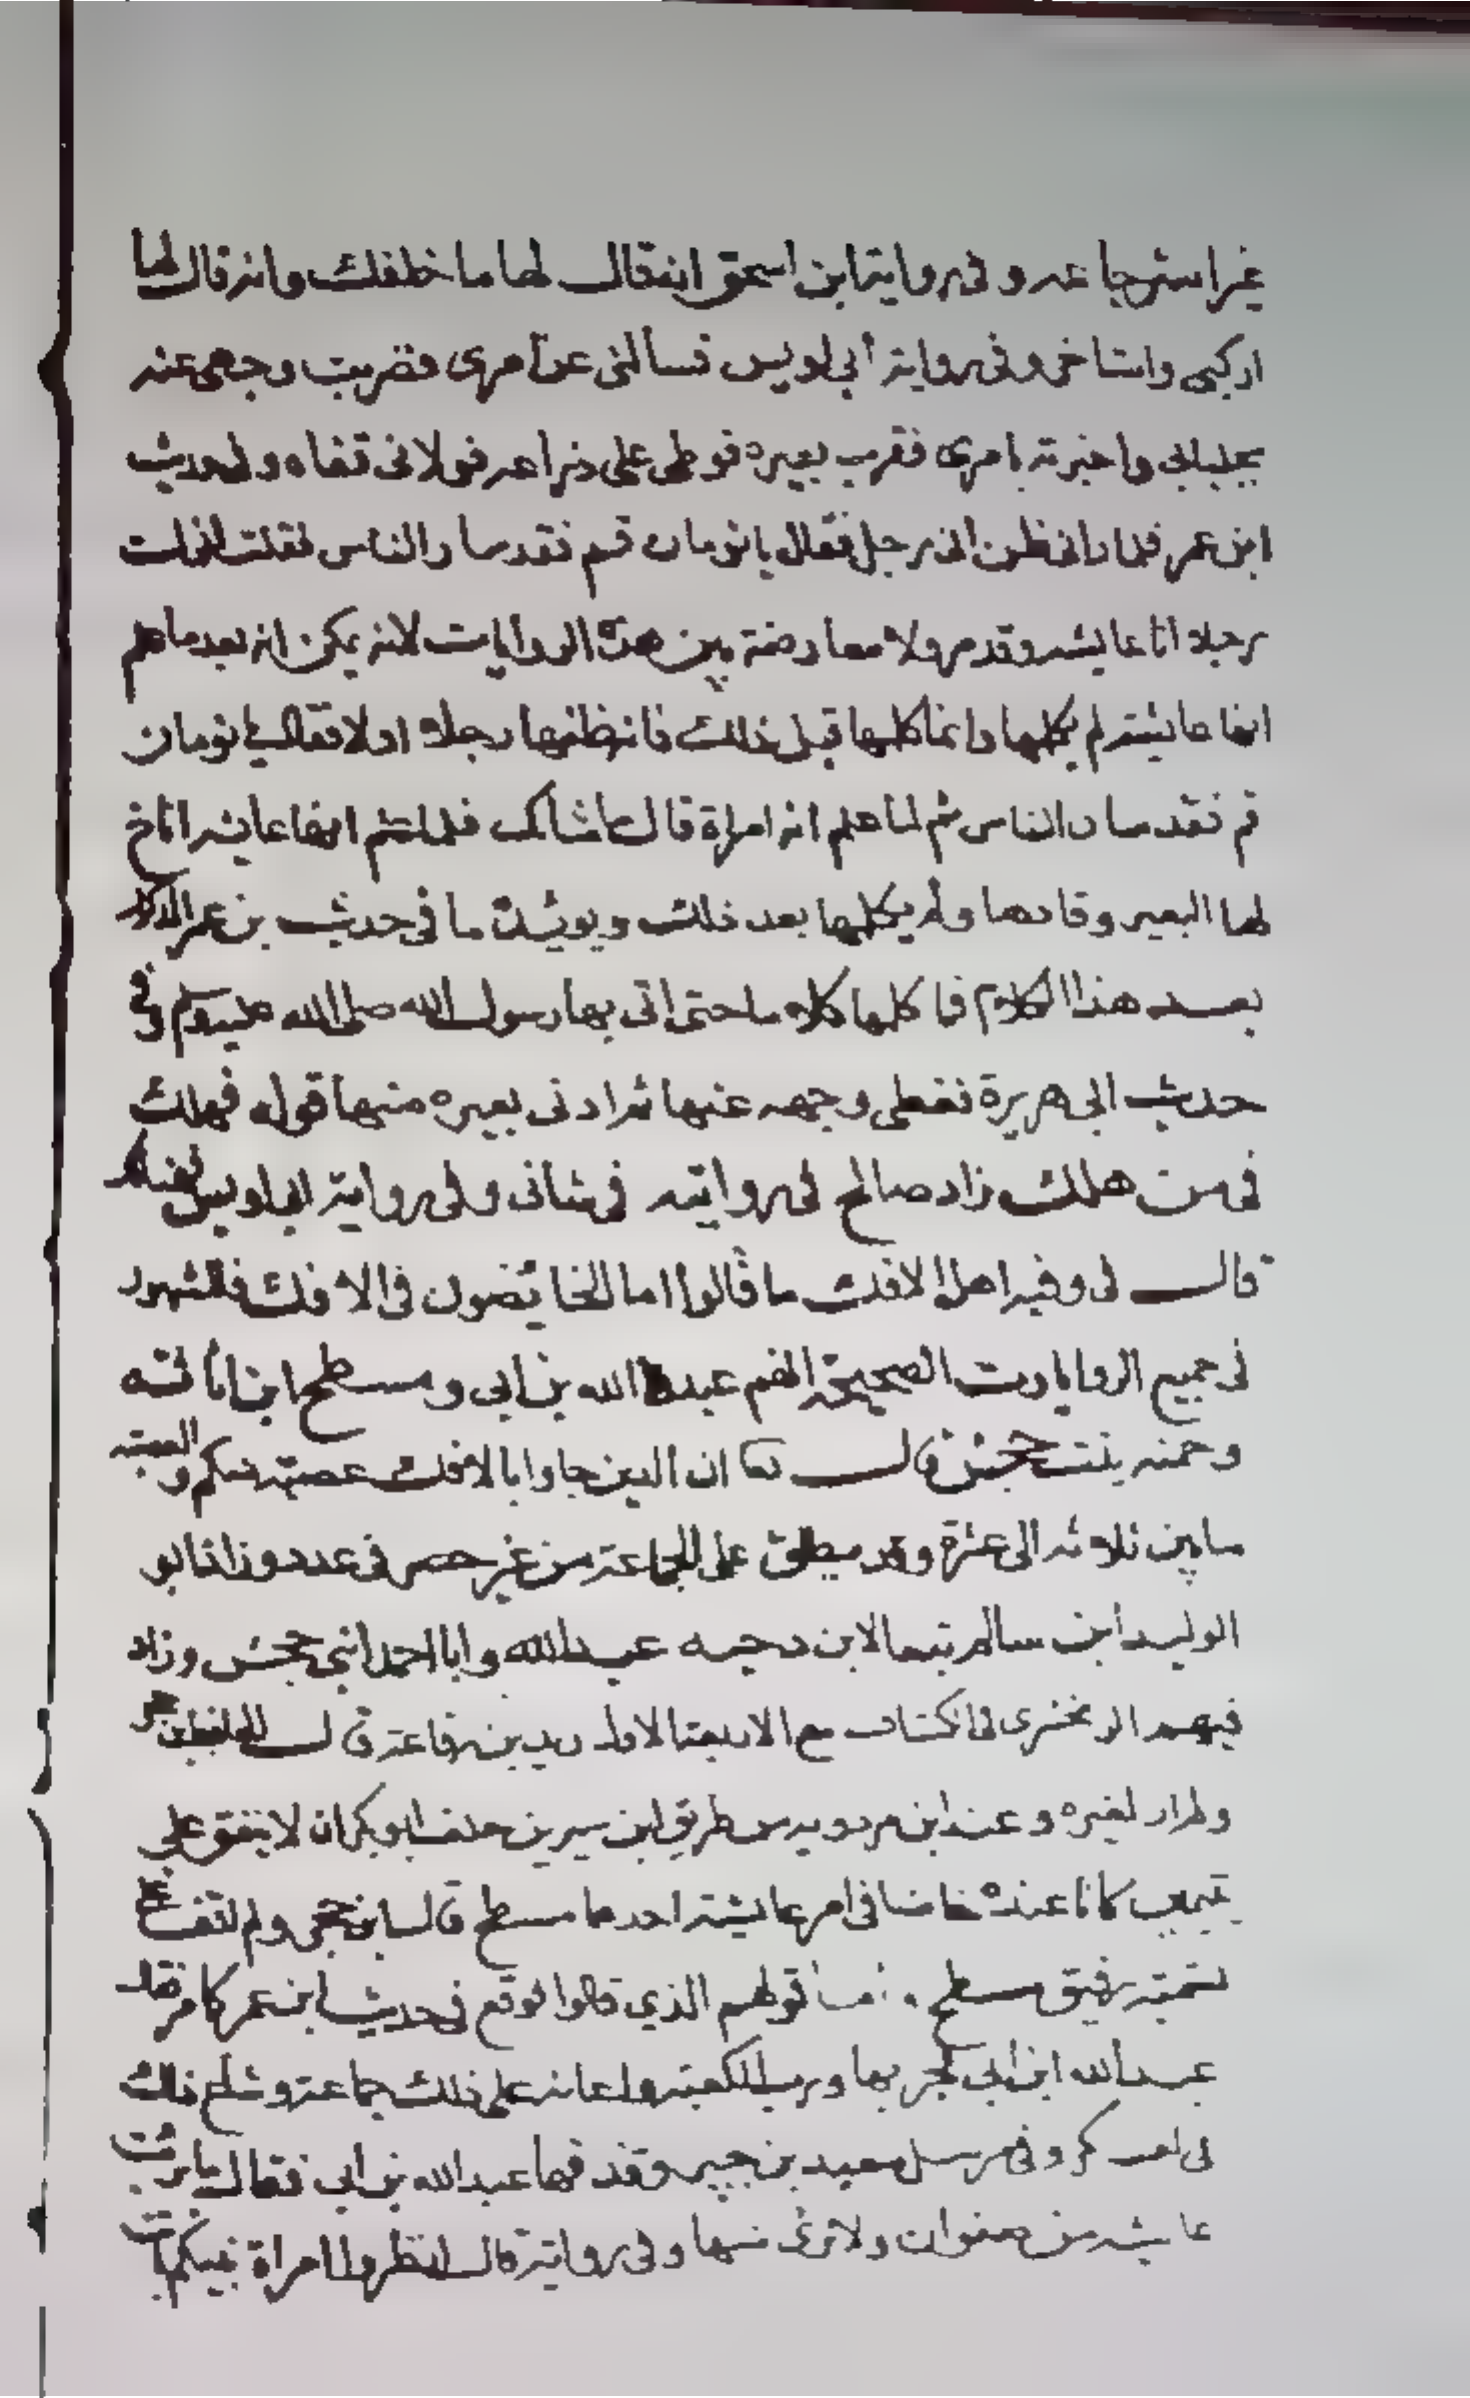 غير استرجاعه وفي رواية ابن اسحق انه قال لها ما خلفك وانه قال لها
اركبي واستاخر وفي رواية أبي اويس فسألني عن أمري فضربت وجهي عنه
بجلبابي واخبرته بامري فقرب بعيره فوطى على ذراعه فولاني قفاه وفي حديث
ابن عمر فلما راني ظن اني رجل فقال يا نومان قم فقد سار الناس فقلت لست
رجلا انا عايشه وقد مر ولا معارضة بين هذه الروايات لانه يمكن انه بعد ما علم
انها عايشة لم يكلمها وانما كلمها قبل ذلك فانه ظنها رجلا اولا فقال يا نومان
قم فقد سار الناس ثم لما علم انه امراة قال ما شانك فلما علم انها عايشه اناخ
لها البعير وقادها ولم يكلمها بعد ذلك ويويده ما في حديث بن عمر المذكور
بعد هذا الكلام فما كلمها كلاما حتى اتى بها رسول الله صلى الله عليه وسلم وفي
حديث ابي هريرة فغطى وجهه عنها ثم ادنى بعيره منها قوله فهلك
في من هلك زاد صالح في روايته في شاني وفي رواية ابي اويس
قال لي وفيه اهل الافك ما قالوا اما الخايضون في الافك فالمشهور
في جميع الروايات الصحيحة انهم عبد الله بن ابي ومسطح ابن اثاثه
وحمنه بنت جحش قال تعا ان الذين جاوا بالافك عصبة منكم والعصبة
ما بين ثلاثه الى عشرة وقد يطلق على الجماعة من غير حصر في عدد وزاد ابو
الوليد ابن سالم تبعا لابن دحيه عبد الله وابا احمد ابني جحش وزاد
فيهم الزمخشري في الكشاف مع الاربعة الاول زيد بن رفاعة قال الحافظ بن حجر
ولم اره لغيره وعند ابن مردويه من طريق ابن سيرين حلف ابو بكر ان لا ينفق على
يتيمين كانا عنده خاضا في امر عايشة احدهما مسطح قال ابن حجر ولم اقف على
تسمية رفيق مسطح . اما قولهم الذي قالوا فوقع في حديث ابن عمر كما مر فقال
عبد الله ابن أبي فجر بها ورب الكعبة واعانه على ذلك جماعة وشاع ذلك
في العسكر وفي مرسل سعيد بن جبير وقذفها عبد الله بن ابي فقال ما برئت
عايشه من صفوان ولا برئ منها وفي رواية قال انظروا امراة نبيكم باتت